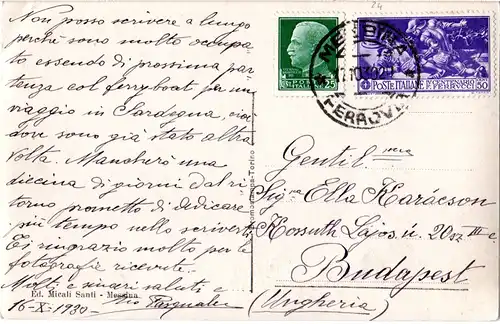 Non posso scrivere a lungo
perchè sono molto occupa-
to essendo di prossima par-
tenza col ferryboat per un
viaggio in Sardegna, cioè
dove sono già stato altra
volta. Mancherò una
diecina di giorni. Dal ri-
torno prometto di dedicare
più tempo nello scriverti.
Ti ringrazio molto per le
fotografie ricevute.
Molti e cari saluti e
Ed. Micali Santi - Messina
tuo Pasquale
16-X-1930
24
25
MESSINA
FERROVIA
POSTE ITALIANE
50
Gentil.ma
Sig.na Ella Karácson
Kossuth Lajos ú. 20sz III e
Budapest
(Ungheria)